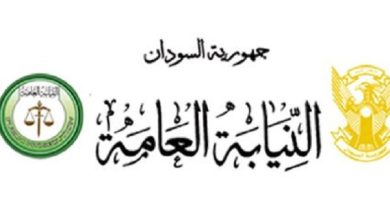 جمهورية السودان
النِّيَابَة العَامَّة
النيابة العامة